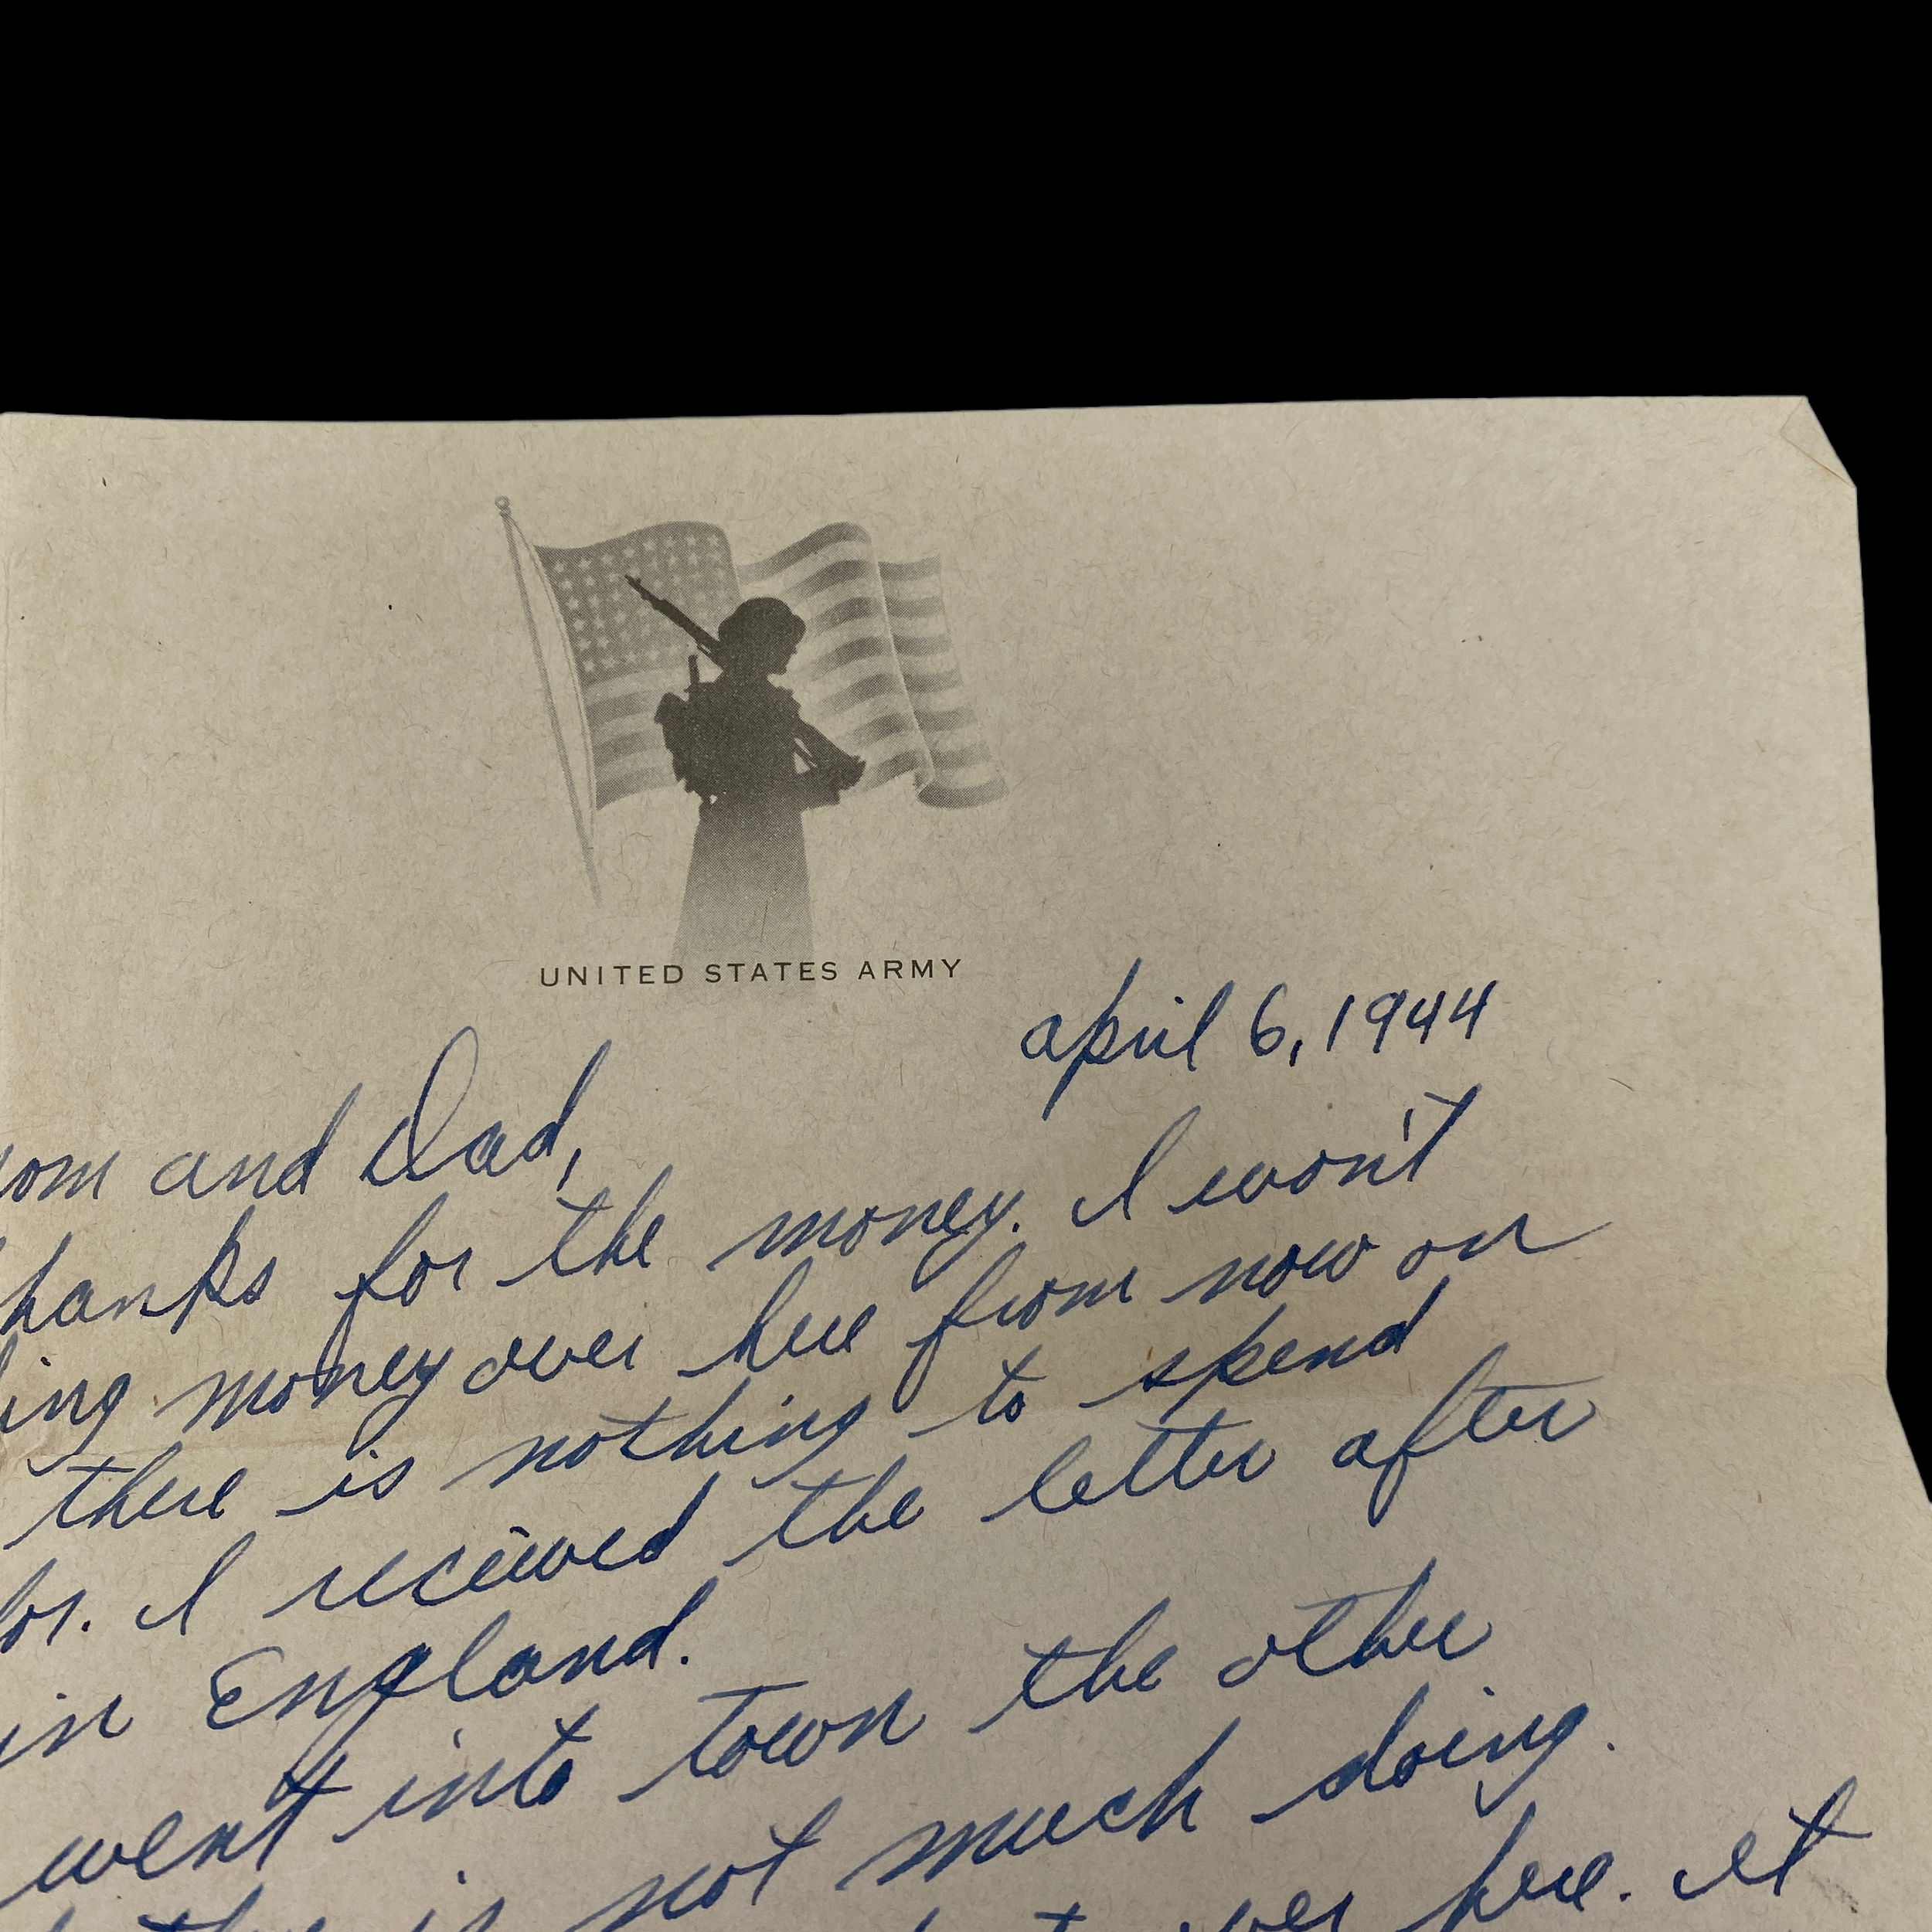 UNITED STATES ARMY
april 6, 1944
and Dad,
for the money. I won't
money over here from now on
there is nothing to spend
I received the letter after
in England.
went into town the other
is not much doing.
over here. It